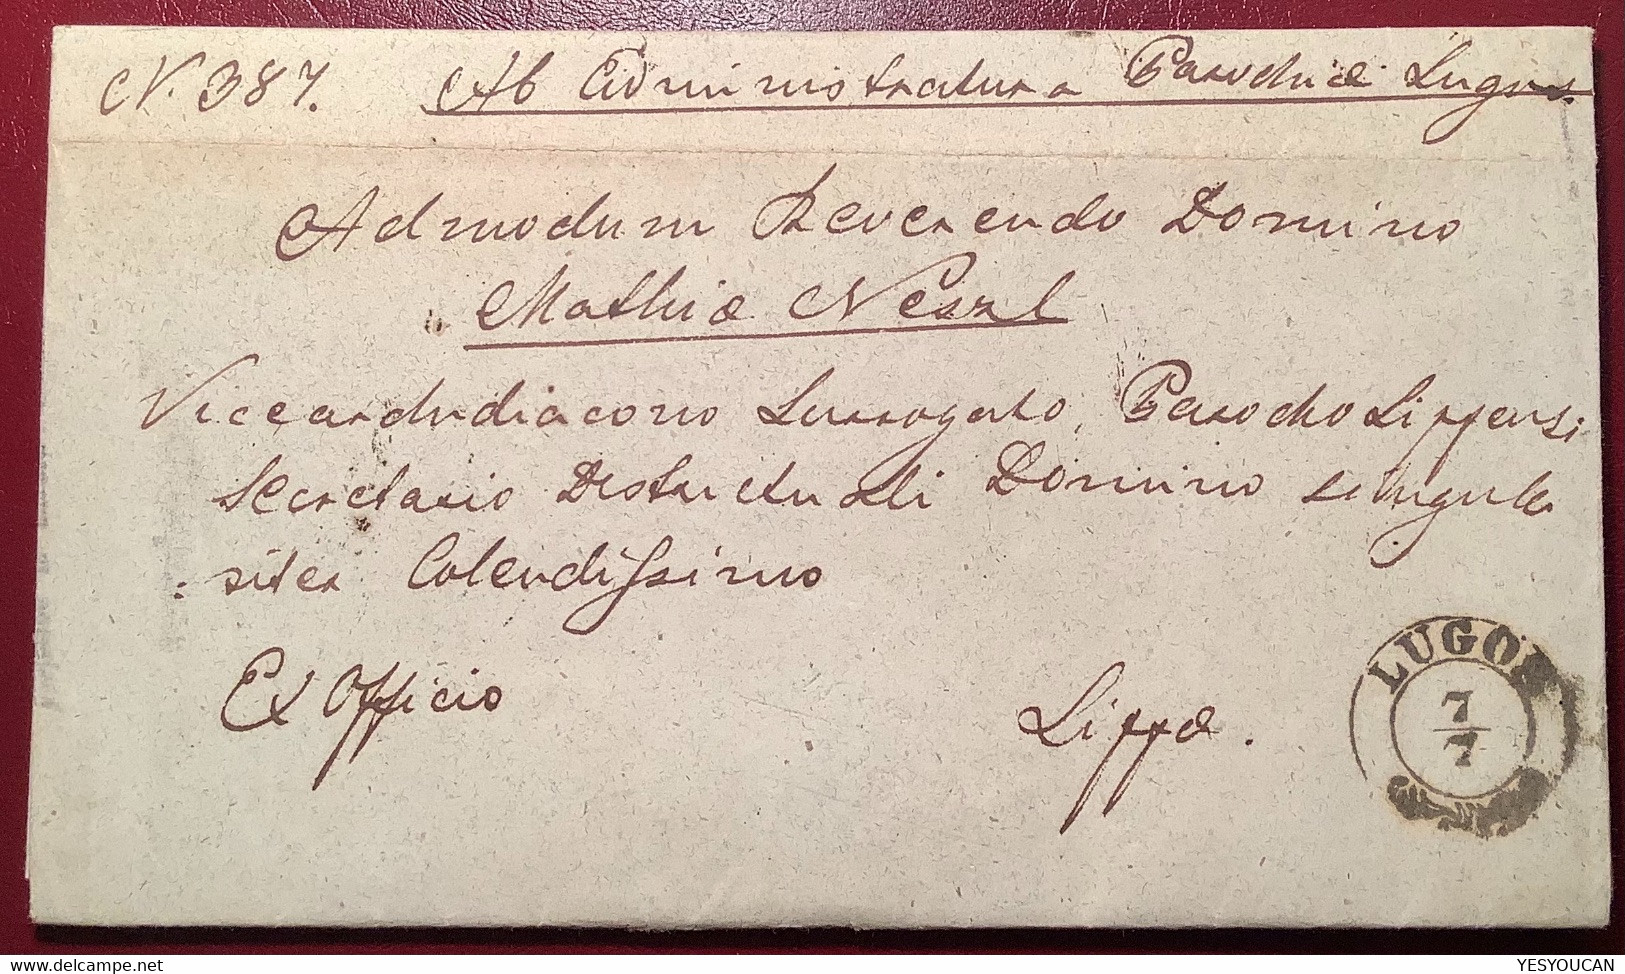 N. 387. Ab Administratura Parochiæ Lugos.
Admodum Reverendo Domino
Mathiæ Neszl
Viccearchidiacono Surrogato, Parocho Lippensi
Secretario Districtuali Domino singula
riter Colendissimo
Ex Officio
Lippæ.
LUGOS
7
7
YESYOUCAN